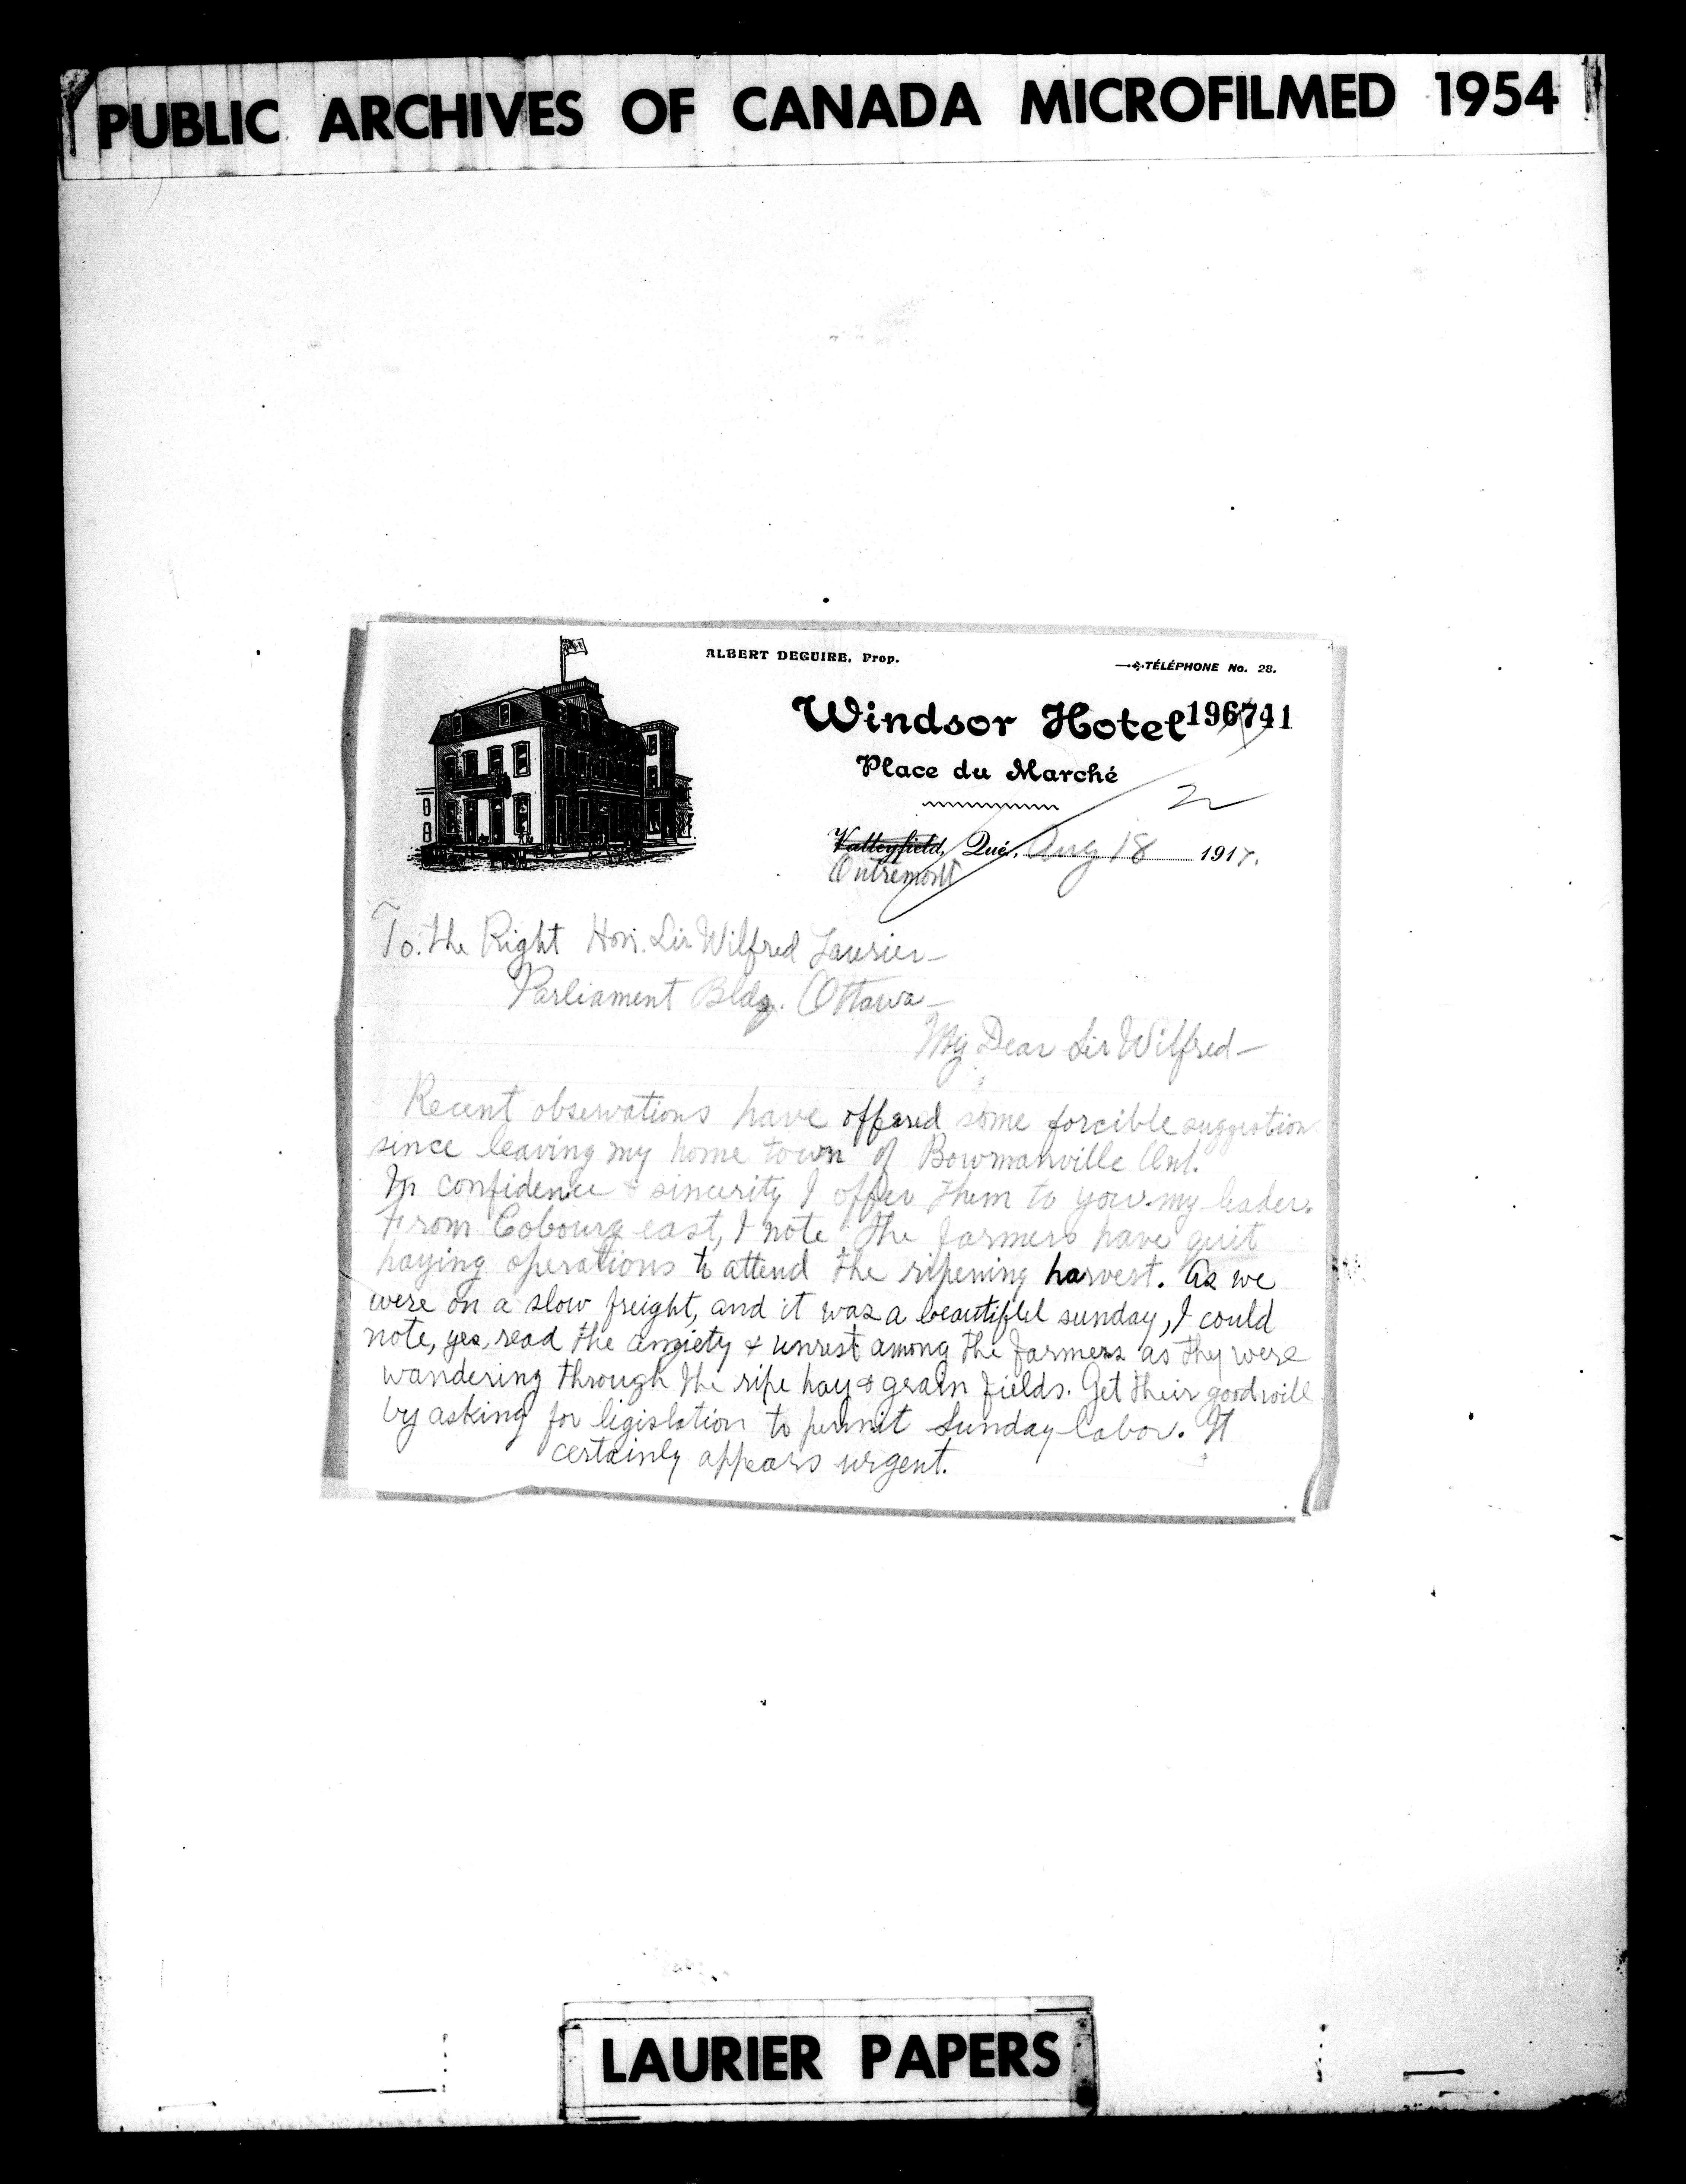 PUBLIC ARCHIVES OF CANADA MICROFILMED 1954
ALBERT DEGUIRE, Prop.
TÉLÉPHONE No. 28.
Windsor Hotel 196741
Place du Marché
2
Valleyfield, Qué., Aug 18 1917.
Outremont
To. the Right Hon. Sir Wilfred Laurier-
Parliament Bldg. Ottawa-
My Dear Sir Wilfred-
Recent observations have offered some forcible suggestion
since leaving my home town of Bowmanville Ont.
In confidence & sincerity I offer them to you my leader.
From Cobourg east, I note the farmers have quit
haying operations to attend the ripening harvest. As we
were on a slow freight, and it was a beautiful sunday, I could
note, yes, read the anxiety & unrest among the farmers as they were
wandering through the ripe hay & grain fields. Get their goodwill
by asking for ligislation to permit Sunday-labor. It
certainly appears urgent.
LAURIER PAPERS